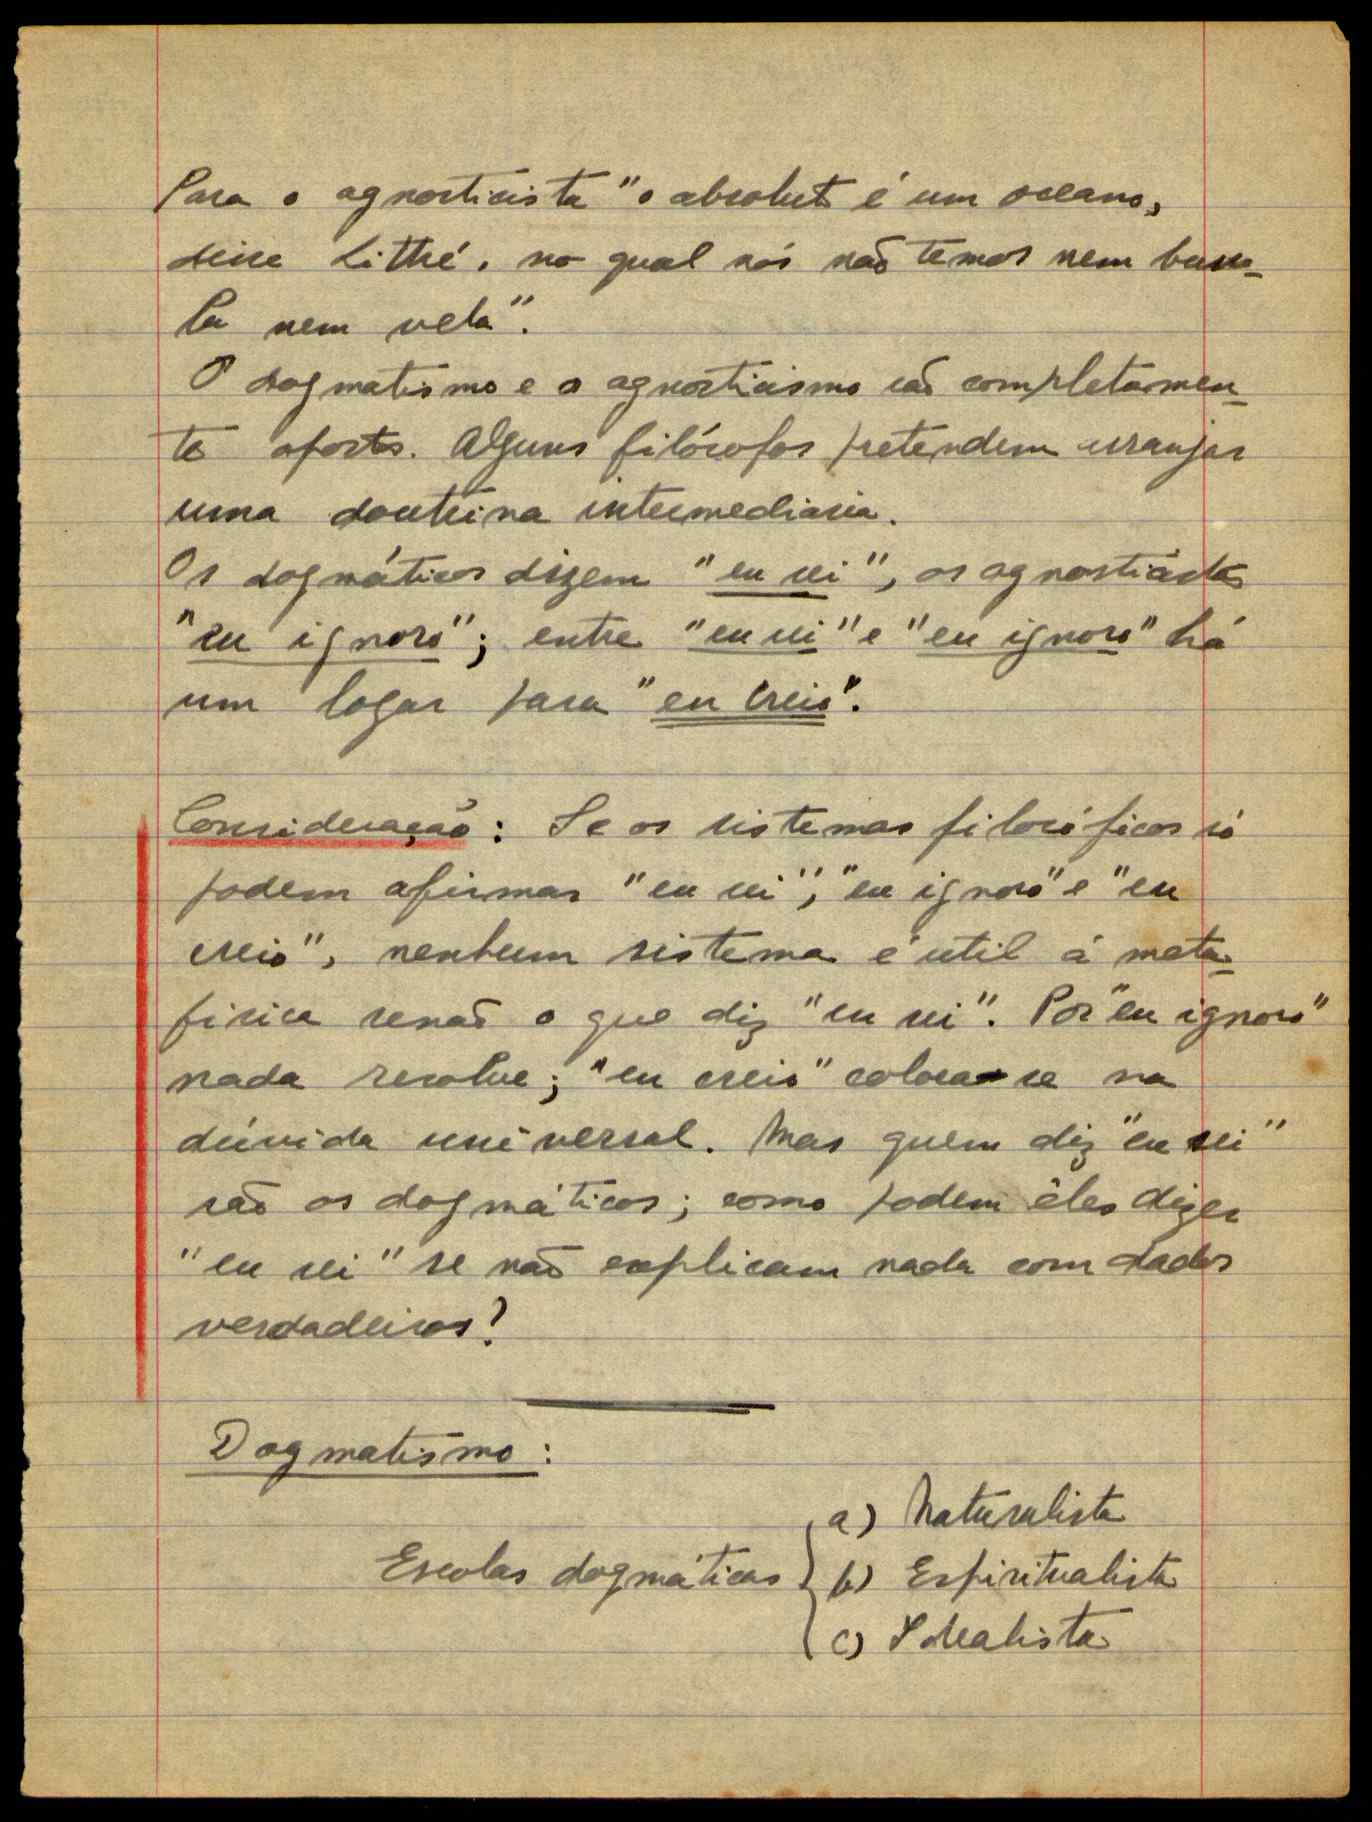 Para o agnosticista "o absoluto é um oceano,
disse Littré, no qual nós não temos nem busso-
la nem vela".
O dogmatismo e o agnosticismo são completamen-
te opostos. Alguns filósofos pretendem arranjar
uma doutrina intermediaria.
Os dogmáticos dizem "eu sei", os agnosticistas
"eu ignoro"; entre "eu sei" e "eu ignoro" há
um logar para "eu creio".
Consideração: Se os sistemas filosóficos só
podem afirmar "eu sei", "eu ignoro" e "eu
creio", nenhum sistema é util á meta-
fisica senão o que diz "eu sei". Por "eu ignoro"
nada resolve; "eu creio" coloca-se na
dúvida universal. Mas quem diz "eu sei"
são os dogmáticos; como podem êles dizer
"eu sei" se não explicam nada com dados
verdadeiros?
Dogmatismo:
Escolas dogmáticas { a) Naturalista
b) Espiritualista
c) Idealista